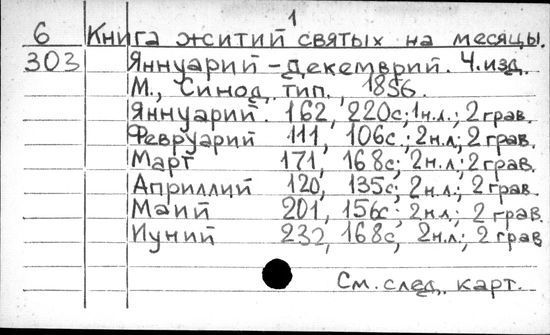 1
6 Книга житий святых на месяцы.
303 Яннуарий – Декемврий. 4.изд.
М., Синод. тип., 1856.
Яннуарий. 162, 220с; 1н.л.; 2 грав.
Февруарий 111, 106с.; 2н.л; 2 грав.
Март 171, 168с; 2н.л; 2 грав.
Априллий 120, 135с; 2н.л; 2 грав.
Маий 201, 156с; 2н.л; 2 грав.
Иуний 232, 168с, 2н.л; 2 грав
См. след. карт.